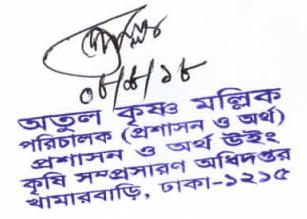 ০৮/৪/১৮
অতুল কৃষ্ণ মল্লিক
পরিচালক (প্রশাসন ও অর্থ)
প্রশাসন ও অর্থ উইং
কৃষি সম্প্রসারণ অধিদপ্তর
খামারবাড়ি, ঢাকা-১২১৫